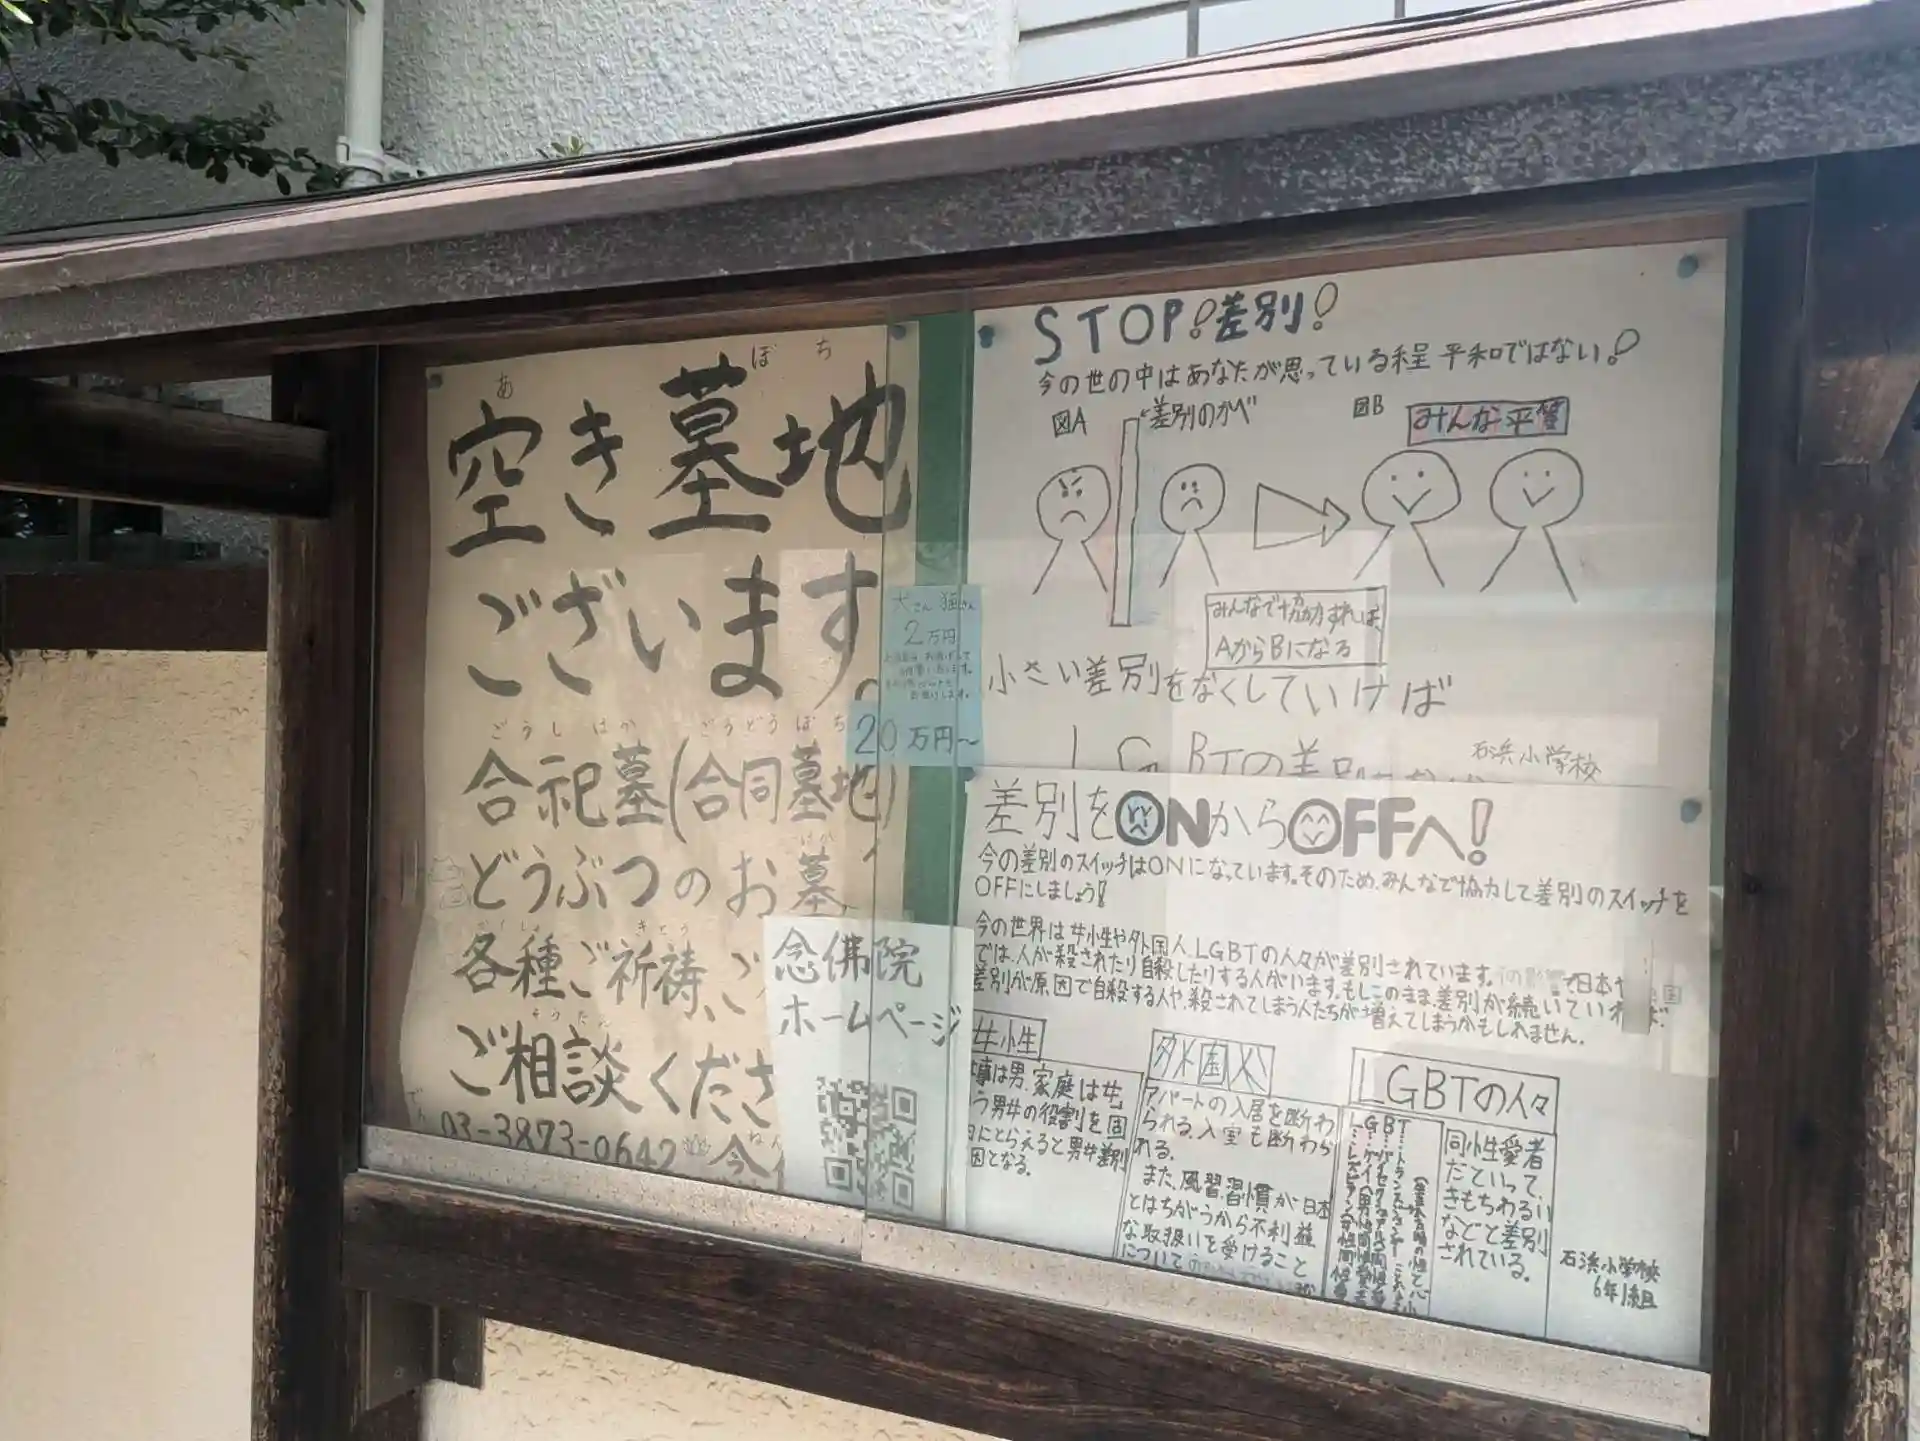 空き墓地
あ
ぼち
ございます。
ごうし はか ごうどう ぼち
合祀墓(合同墓地)
どうぶつのお墓
きとう
各種ご祈祷、ご
そうだん
ご相談くださ
03-3873-0642
犬さん 猫さん
2万円
20万円～
念佛院
ホームページ
STOP!差別!
今の世の中はあなたが思っている程平和ではない!
図A
差別のかべ
図B
みんな平等
みんなで協力すれば、
AからBになる
小さい差別をなくしていけば
LGBTの差別
石浜小学校
差別をONからOFFへ!
今の差別のスイッチはONになっています。そのため、みんなで協力して差別のスイッチを
OFFにしましょう!
今の世界は女性や外国人、LGBTの人々が差別されています。
では、人が殺されたり自殺したりする人がいます。もしこのまま差別が続いてい
差別が原因で自殺する人や、殺されてしまう人たちが増えてしまうかもしれません。
女性
仕事は男、家庭は女
う男女の役割を固
にとらえると男女差別
因となる。
外国人
アパートの入居を断わ
られる。入室も断わら
れる。
また、風習、習慣が日本
とはちがうから不利益
な取扱いを受けること
について
LGBTの人々
LGBT
同性愛者
だといって、
きもちわるい
などと差別
されている。
石浜小学校
6年1組